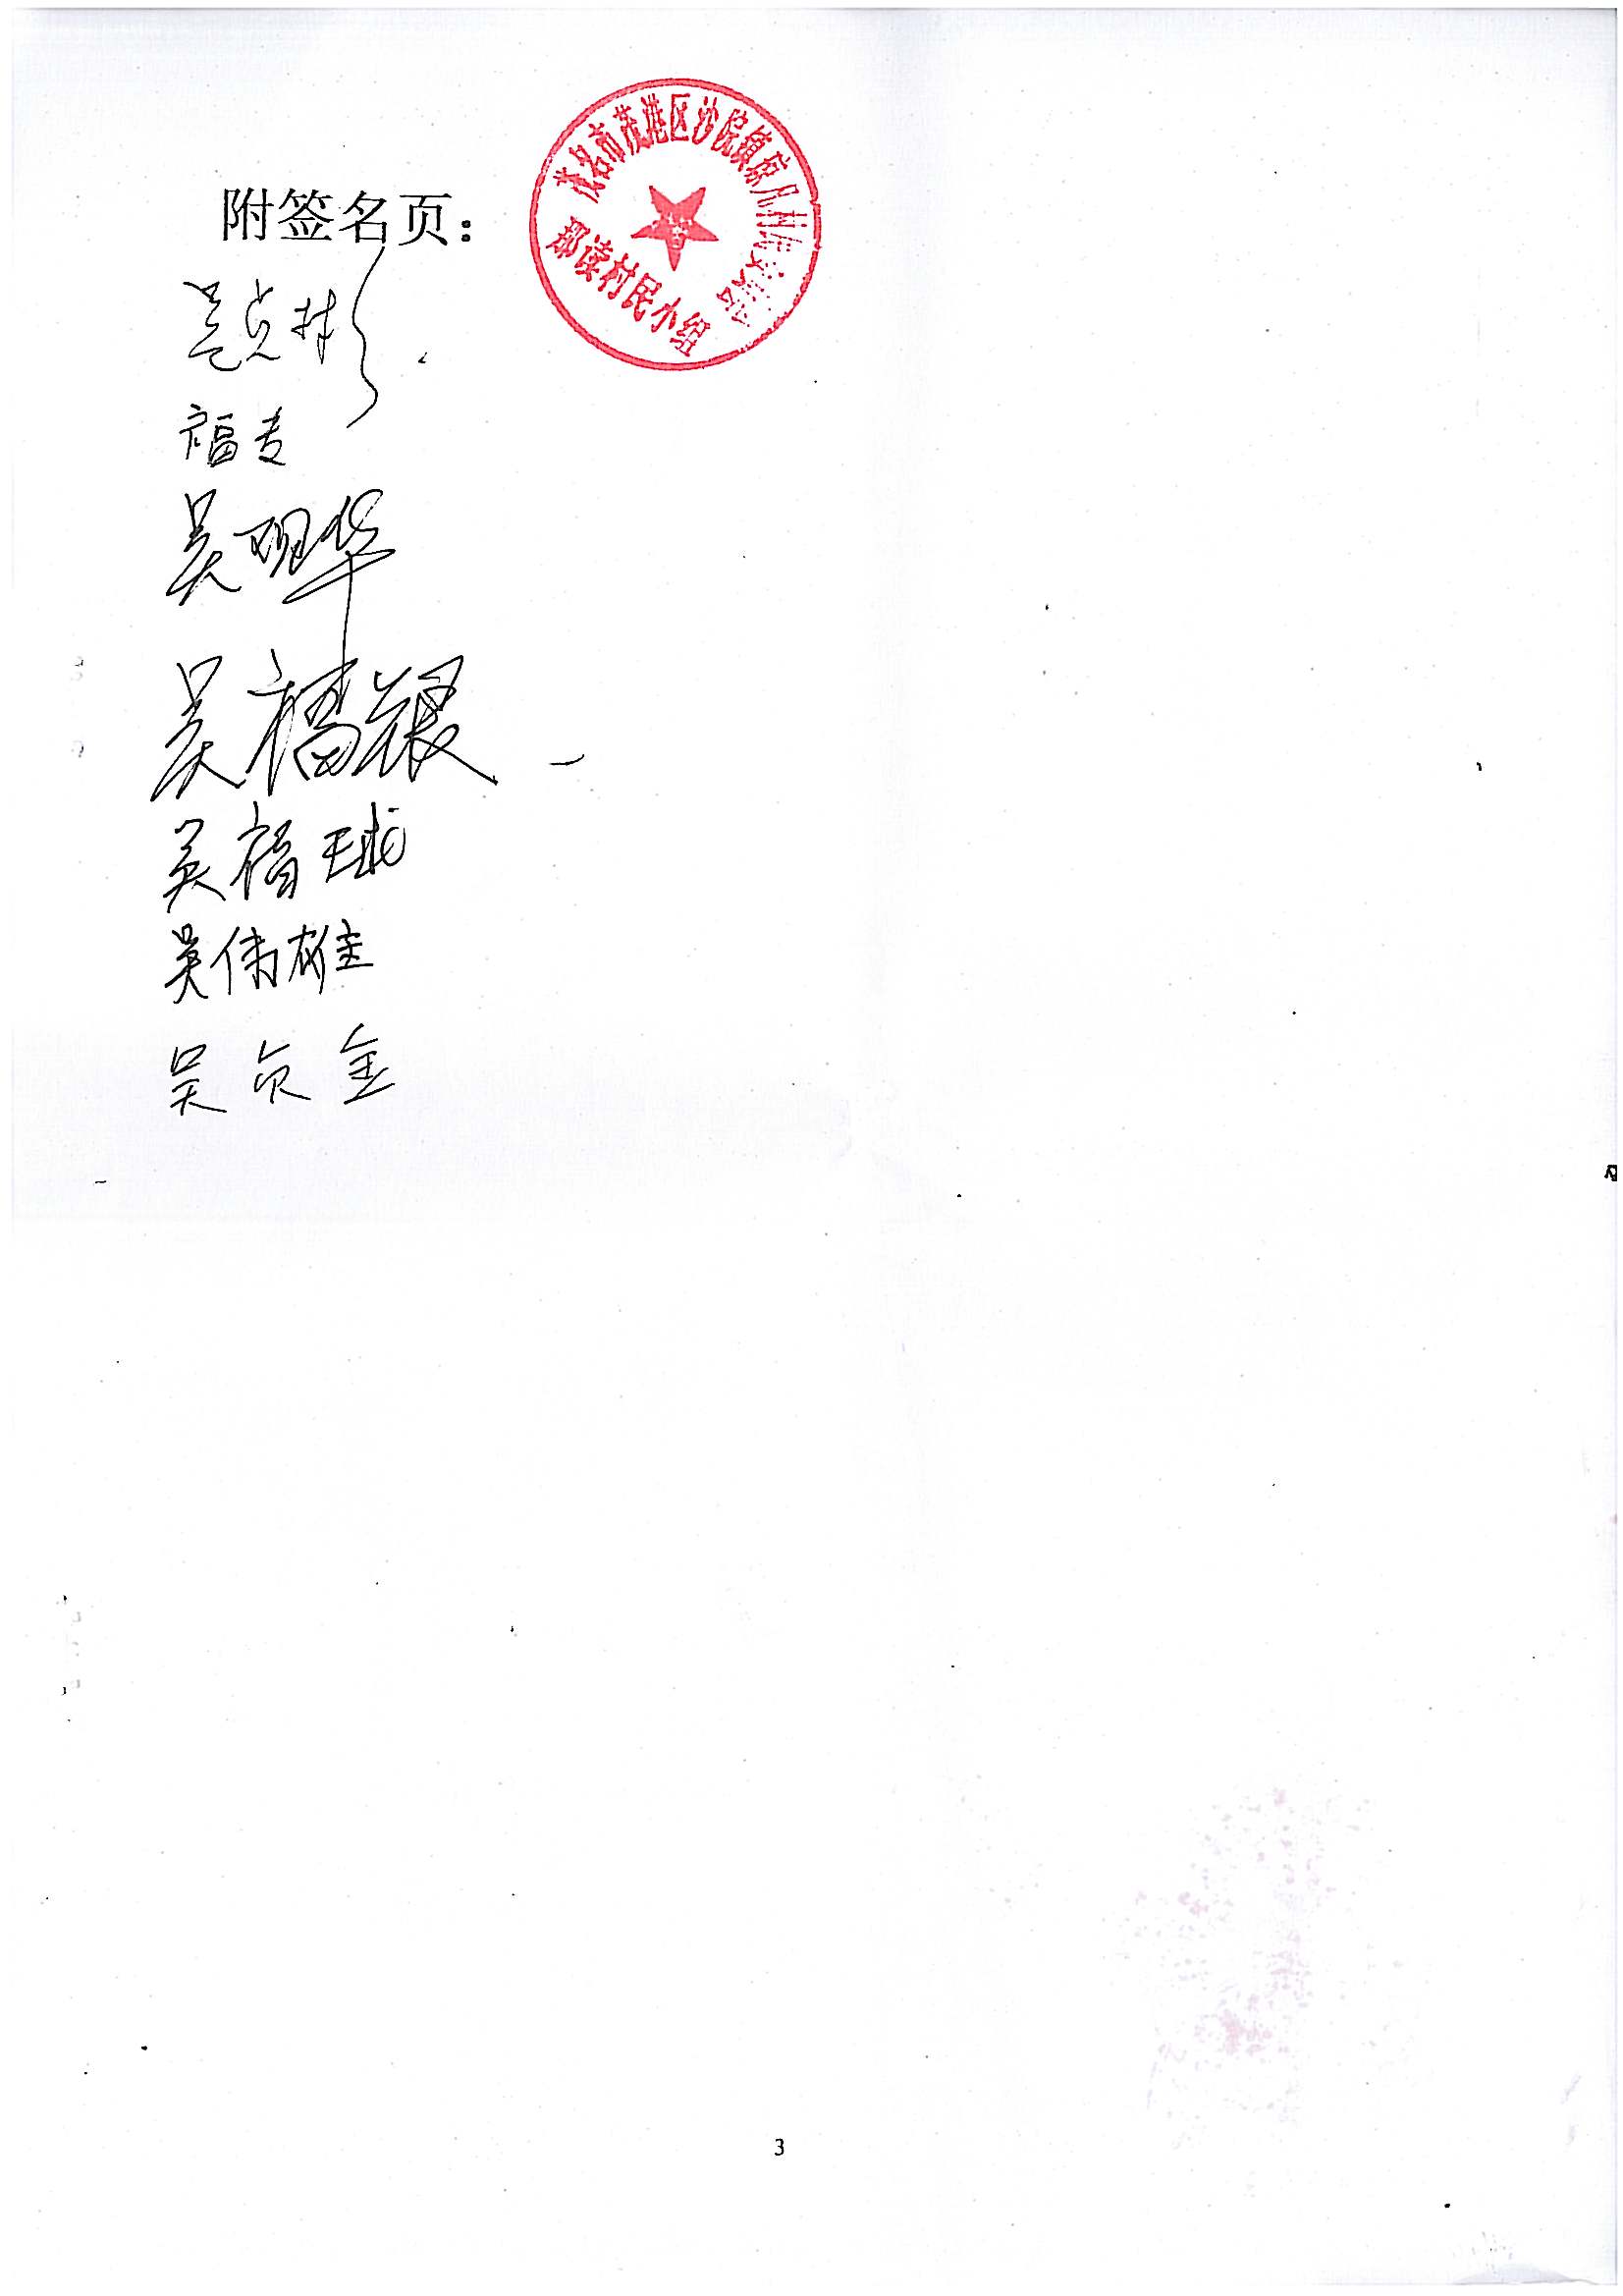 附签名页：
茂名市茂港区沙院镇 村民委员会
那读村民小组
吴贞彬
福寿
吴明华
吴福银
吴福球
吴伟雄
吴贞金
3